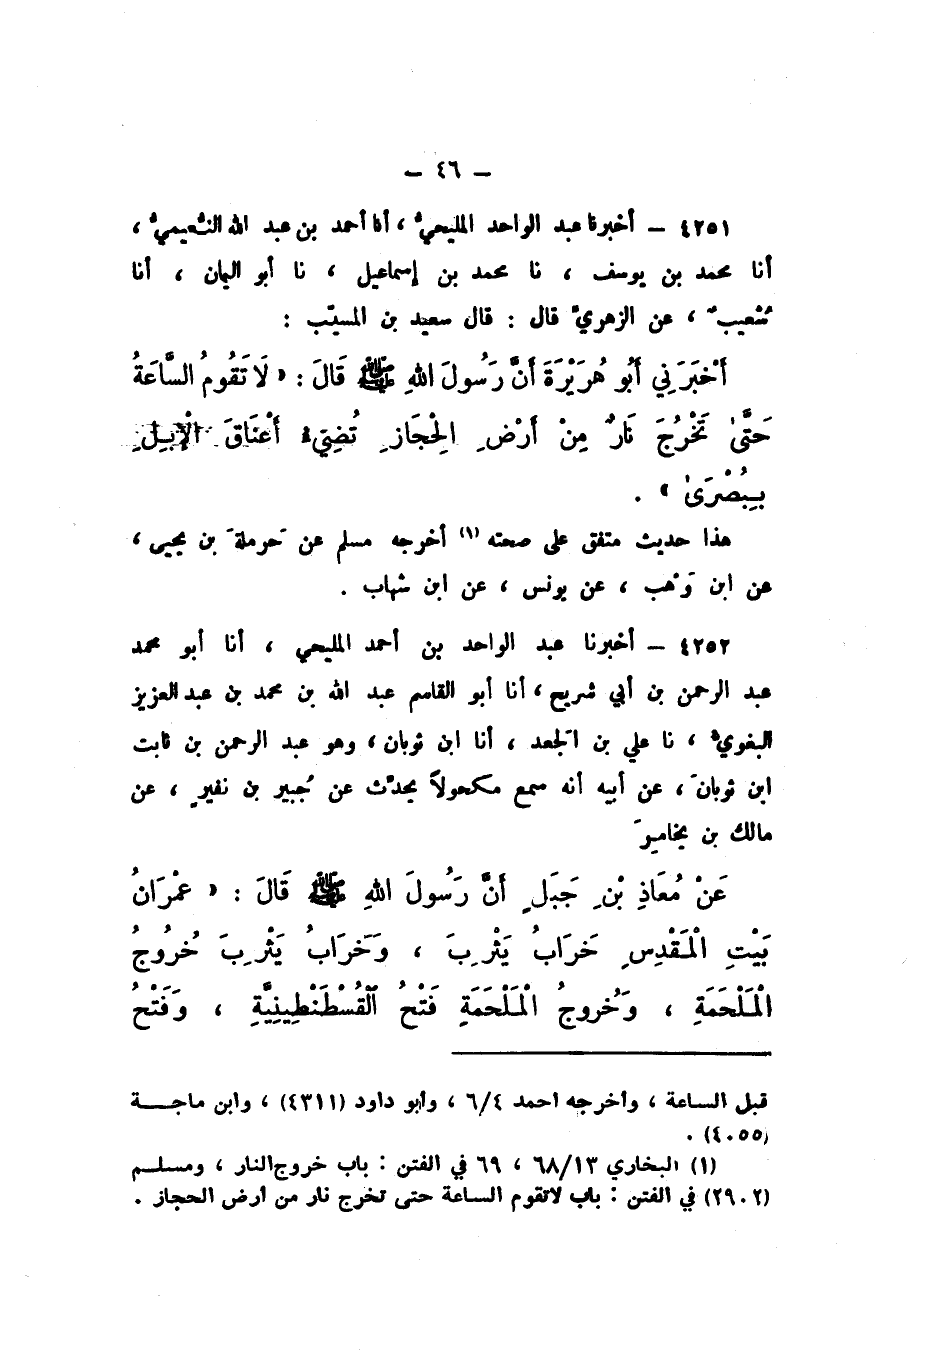 – ٤٦ –
٤٢٥١ – أخبرنا عبد الواحد المليحيُّ ، أنا أحمد بن عبد الله النُّعيميُّ ،
أنا محمد بن يوسف ، نا محمد بن إسماعيل ، نا أبو اليمان ، أنا
شُعيبٌ ، عن الزهريِّ قال : قال سعيد بن المسيّب :
أَخْبَرَنِي أَبُو هُرَيْرَةَ أَنَّ رَسُولَ اللهِ ﷺ قَالَ : « لَا تَقُومُ السَّاعَةُ
حَتَّىٰ تَخْرُجَ نَارٌ مِنْ أَرْضِ الْحِجَازِ تُضِيءُ أَعْنَاقَ الْإِبِلِ
بِبُصْرَىٰ » .
هذا حديث متفق على صحته (١) أخرجه مسلم عن حَرملةَ بن يحيى ،
عن ابن وَهْب ، عن يونس ، عن ابن شهاب .
٤٢٥٢ – أخبرنا عبد الواحد بن أحمد المليحي ، أنا أبو محمد
عبد الرحمن بن أبي شريح ، أنا أبو القاسم عبد الله بن محمد بن عبد العزيز
البغويُّ ، نا علي بن الجَعد ، أنا ابن ثوبان ، وهو عبد الرحمن بن ثابت
ابن ثوبانَ ، عن أبيه أنه سمع مكحولاً يحدِّث عن جُبير بن نفيرٍ ، عن
مالك بن يخامِرَ
عَنْ مُعَاذِ بْنِ جَبَلٍ أَنَّ رَسُولَ اللهِ ﷺ قَالَ : « عُمْرَانُ
بَيْتِ الْمَقْدِسِ خَرَابُ يَثْرِبَ ، وَخَرَابُ يَثْرِبَ خُرُوجُ
الْمَلْحَمَةِ ، وَخُروجُ الْمَلْحَمَةِ فَتْحُ الْقُسْطَنْطِينِيَّةِ ، وَفَتْحُ
قبل الساعة ، وأخرجه احمد ٦/٤ ، وأبو داود (٤٣١١) ، وابن ماجــــة
(٤٠٥٥) .
(١) البخاري ٦٨/١٣ ، ٦٩ في الفتن : باب خروج النار ، ومسلـم
(٢٩٠٢) في الفتن : باب لاتقوم الساعة حتى تخرج نار من أرض الحجاز .